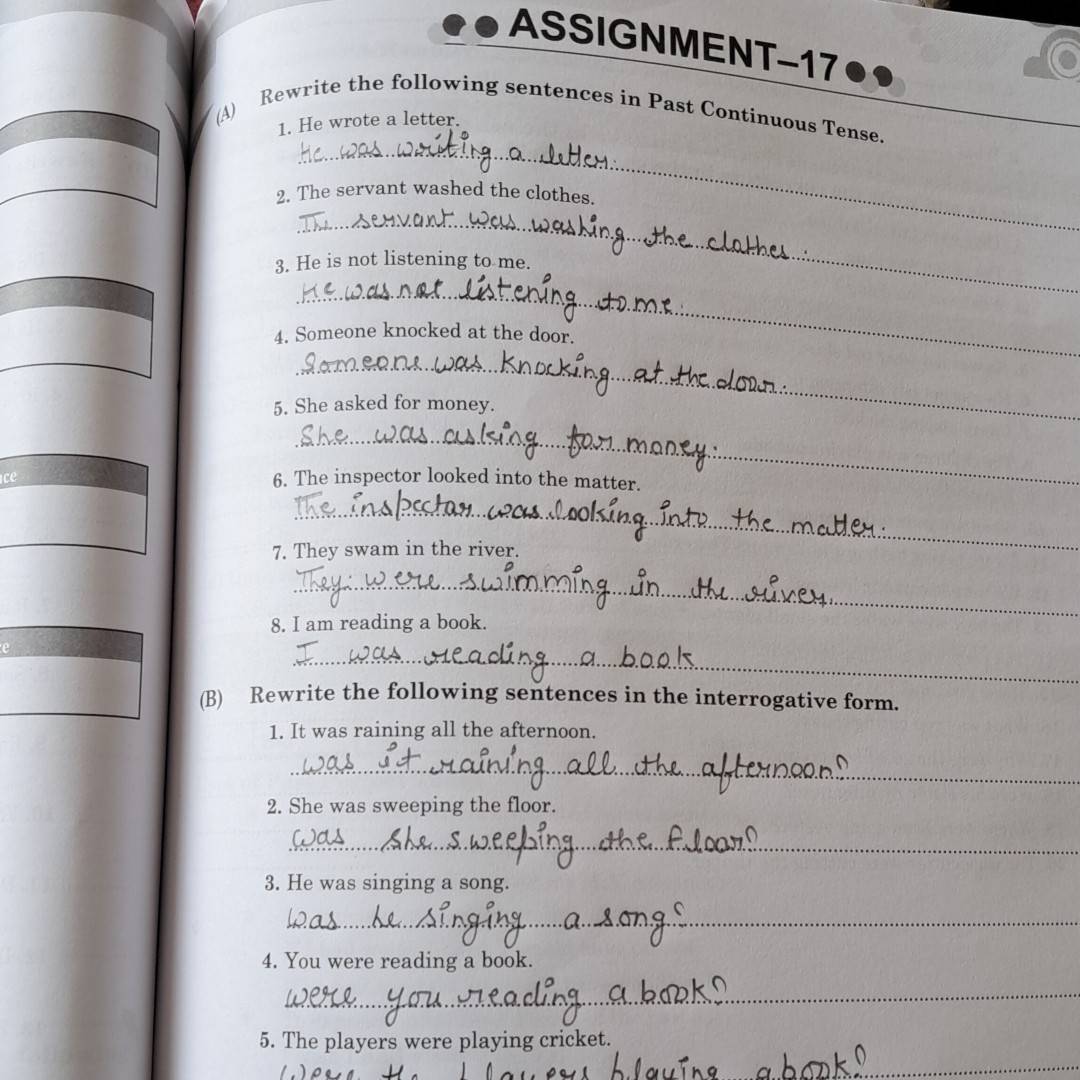 ASSIGNMENT–17
(A) Rewrite the following sentences in Past Continuous Tense.
1. He wrote a letter.
He was writing a letter.
2. The servant washed the clothes.
The servant was washing the clothes.
3. He is not listening to me.
He was not listening to me.
4. Someone knocked at the door.
Someone was knocking at the door.
5. She asked for money.
She was asking for money.
6. The inspector looked into the matter.
The inspector was looking into the matter.
7. They swam in the river.
They were swimming in the river.
8. I am reading a book.
I was reading a book
(B) Rewrite the following sentences in the interrogative form.
1. It was raining all the afternoon.
was it raining all the afternoon?
2. She was sweeping the floor.
was she sweeping the floor?
3. He was singing a song.
was he singing a song?
4. You were reading a book.
were you reading a book?
5. The players were playing cricket.
were the players playing a book?
ce
e